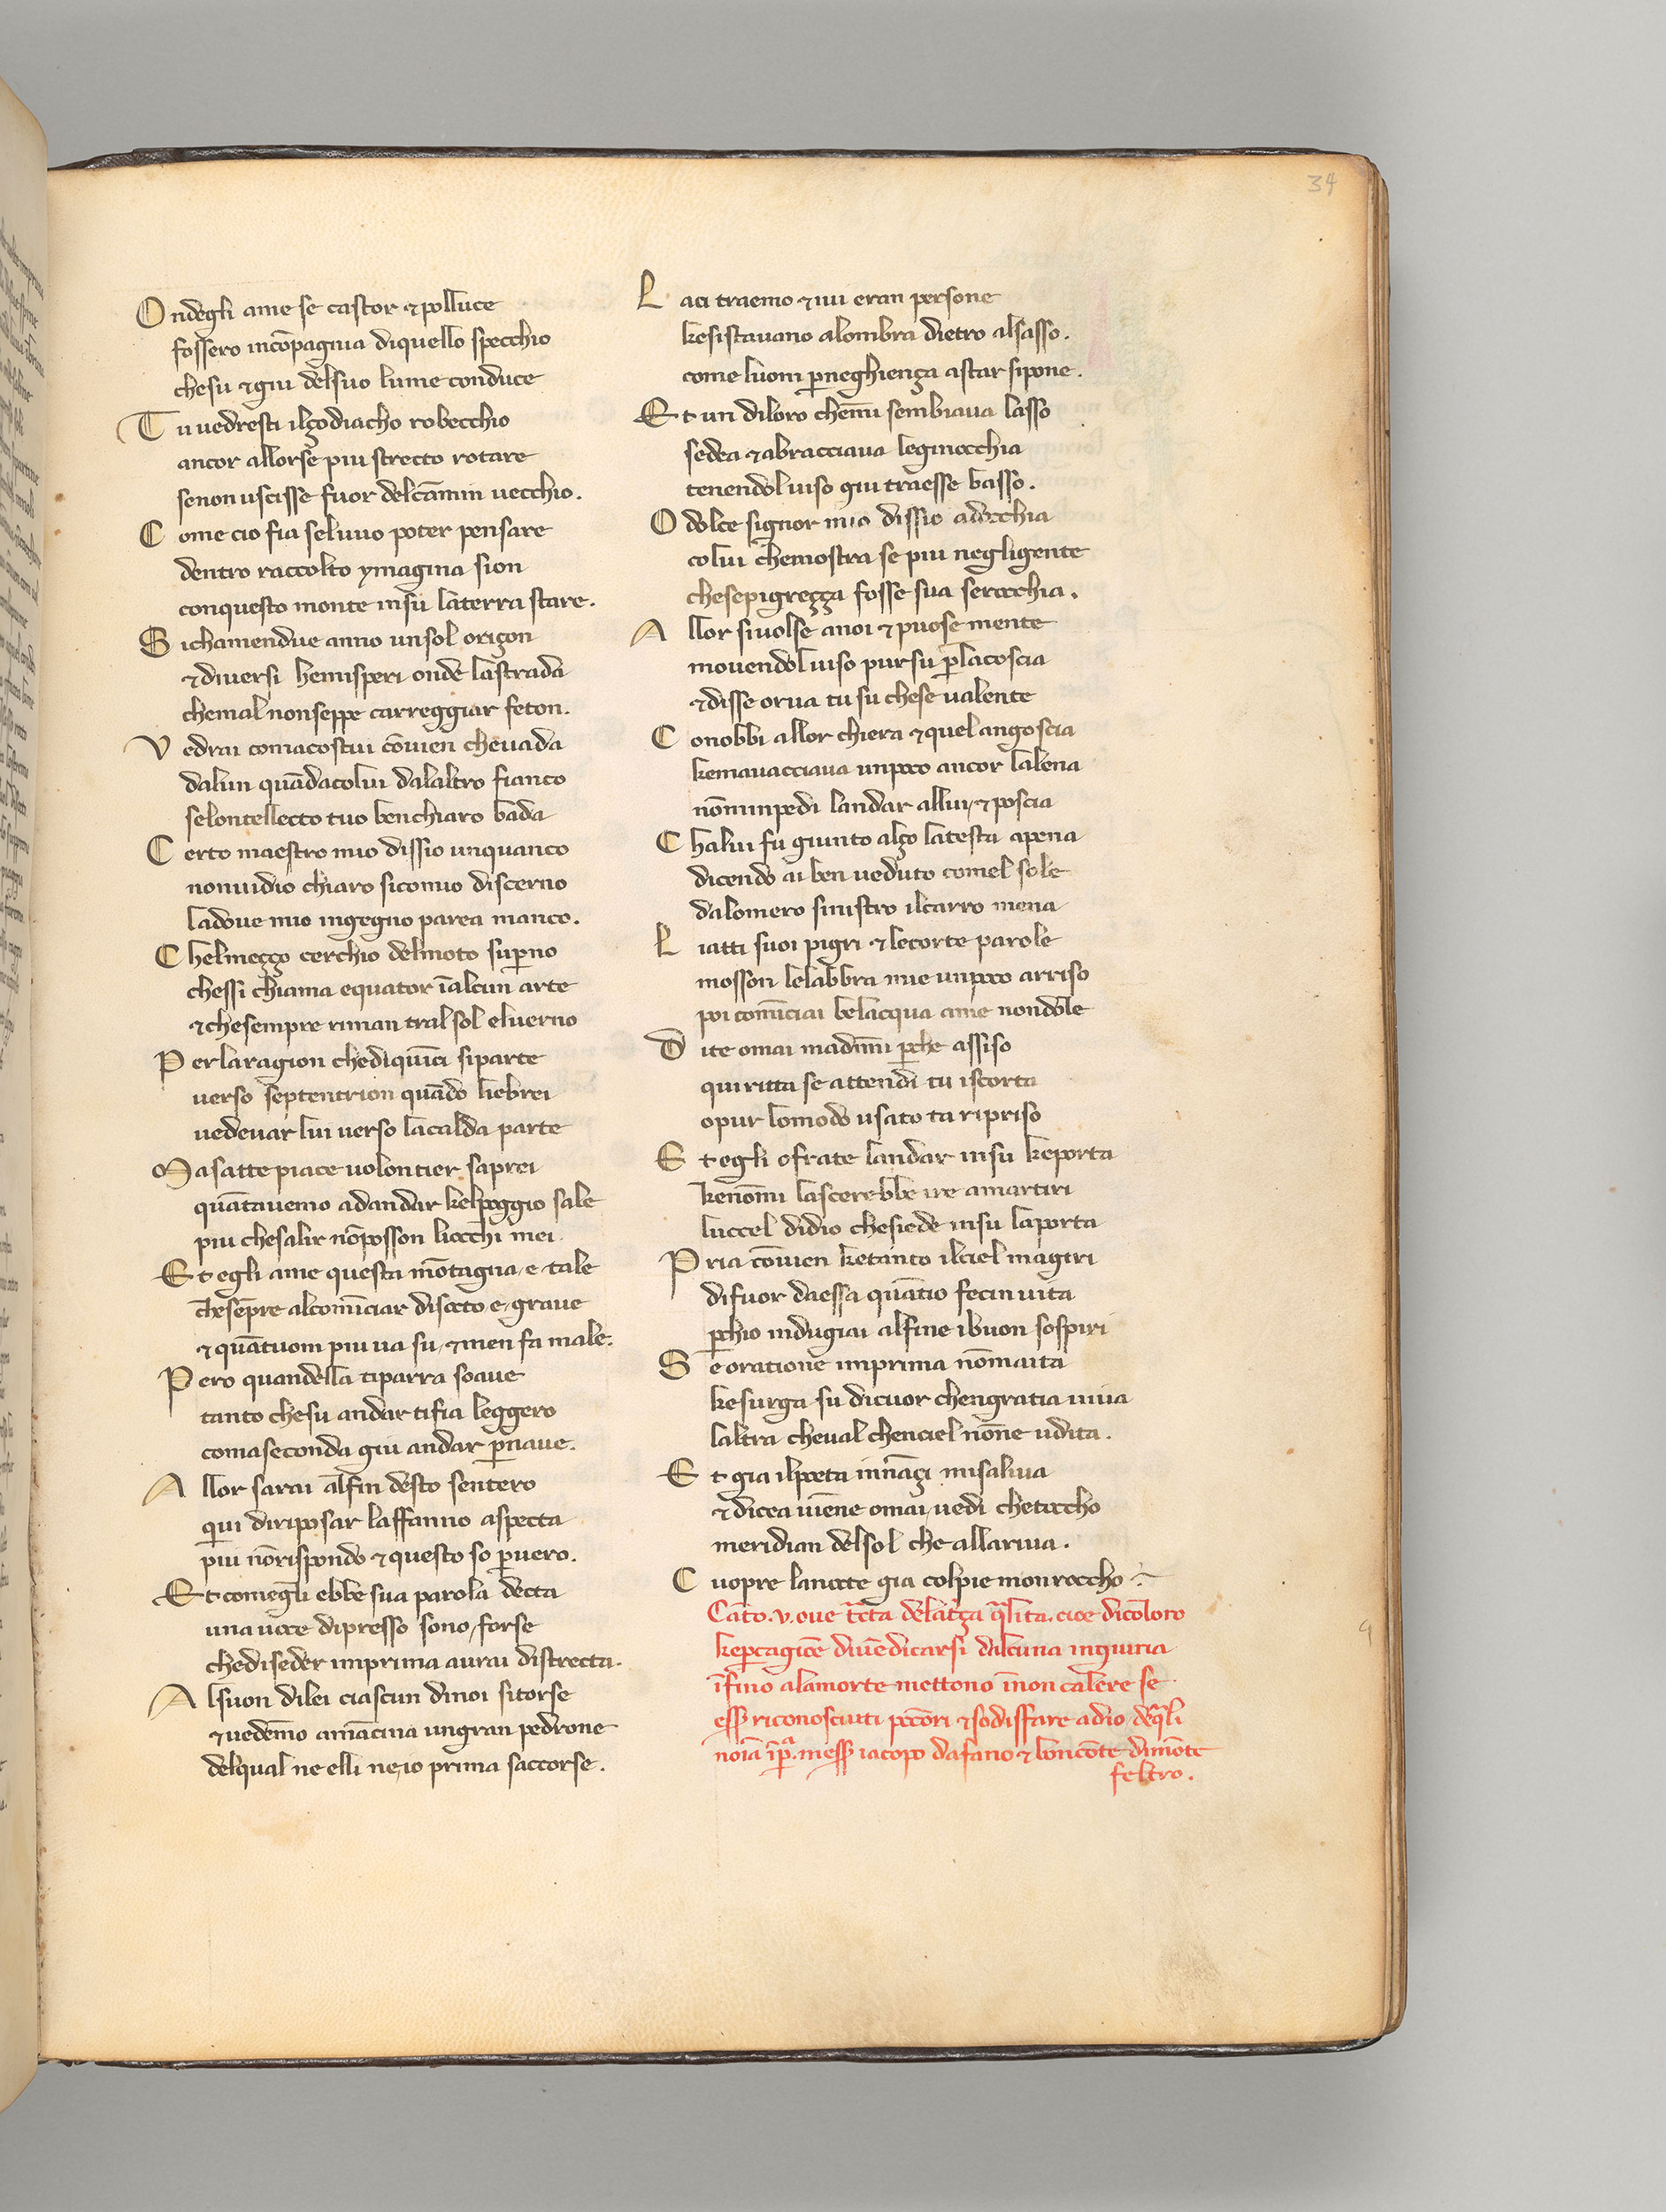 34
Ondegli ame se castor ⁊ polluce
fossero incōpagnia diquello specchio
chesu ⁊ giu delsuo lume conduce
Tu uedresti ilçodiacho robecchio
ancor allorse piu strecto rotare
senon uscisse fuor delcāmin uecchio.
Come cio fia seluuo poter pensare
dentro raccolto ymagina sion
conquesto monte insu laterra stare.
Sichamendue anno unsol oriçon
⁊ diuersi hemisperi onde lastrada
chemal nonseppe carreggiar feton.
Vedrai comacostui cōuien cheuada
dalun quādacolui dalaltro fianco
selontellecto tuo benchiaro bada
Certo maestro mio dissio unquanco
nonuidio chiaro sicomio discerno
ladoue mio ingegno parea manco.
Chelmeçço cerchio delmoto sup̄no
chessi chiama equator īalcun arte
⁊ chesempre riman tral sol eluerno
Per laragion chediquīci siparte
uerso septentrion quādo liebrei
uedeuar lui uerso lacalda parte
Masatte piace uolontier saprei
quātauemo adandar kelpoggio sale
piu chesalir nōposson liocchi mei.
Et egli ame questa mōtagna, e tale
chesēpre alcomīciar disocto e, graue
⁊ quātuom piu ua su, ⁊ men fa male.
Pero quandella tiparra soaue
tanto chesu andar tifia leggero
comaseconda giu andar p̄naue.
Allor sarai alfin desto sentero
qui diriposar laffanno aspecta
piu nōrispondo ⁊ questo so p̄uero.
Et comegli ebbe sua parola decta
una uoce dipresso sono, forse
chediseder imprima aurai distrecta.
Alsuon dilei ciascun dinoi sitorse
⁊ uedēmo amācina ungran pedrone
delqual ne elli ne, io prima saccorse.
Laci traemo ⁊ iui eran persone
kesistauano alombra dietro alsasso.
come luom p̄neghiença astar sipone.
Et un diloro chemi sembiaua lasso
sedea ⁊ abracciaua leginocchia
tenendol uiso giu traesse basso.
O dolce signor mio dissio adocchia
colui chemostra se piu negligente
chesepigreçça fosse sua serocchia.
Allor siuolse anoi ⁊ puose mente
mouendol uiso pursu p̄lacoscia
⁊ disse orua tu su chese ualente
Conobbi allor chiera ⁊ quel angoscia
kemauacciaua unpoco ancor lalena
nōmimpedi landar allui, ⁊ poscia
Chalui fu giunto alço latesta apena
dicendo ai ben ueduto comel sole
dalomero sinistro ilcarro mena
Liatti suoi pigri ⁊ lecorte parole
mosson lelabbra mie unpoco arriso
poi comīciai belacqua ame nondole
Dite omai madimi p̄che assiso
quiritta se attendi tu iscorta
opur lomodo usato ta ripriso
Et egli ofrate landar insu keporta
kenōmi lascerebbe ire amartiri
luccel didio chesiede insu laporta
Pria cōuien ketanto ilciel magiri
difuor daessa quātio fecin uita
p̄chio indugiai alfine ibuon sospiri
Se oratione imprima nōmaita
kesurga su dicuor chengratia uiua
laltra cheual chenciel nōne udita.
Et gia ilpoeta innāçi misaliua
⁊ dicea uiēne omai, uedi chetoccho
meridian delsol che allariua.
Cuopre lanocte gia colpie monroccho
Canto .v. oue tracta delaterça qualita, cioe dicoloro
kep cagiōe diuēdicarsi dalcuna ingiuria
īfino alamorte mettono īnon calere se
ess̄ riconosciuti pecōri ⁊ sodisfare adio deq̄li
noīa īp̄ª mess̄ iacopo dafano ⁊ boncōte dimōte
feltro.